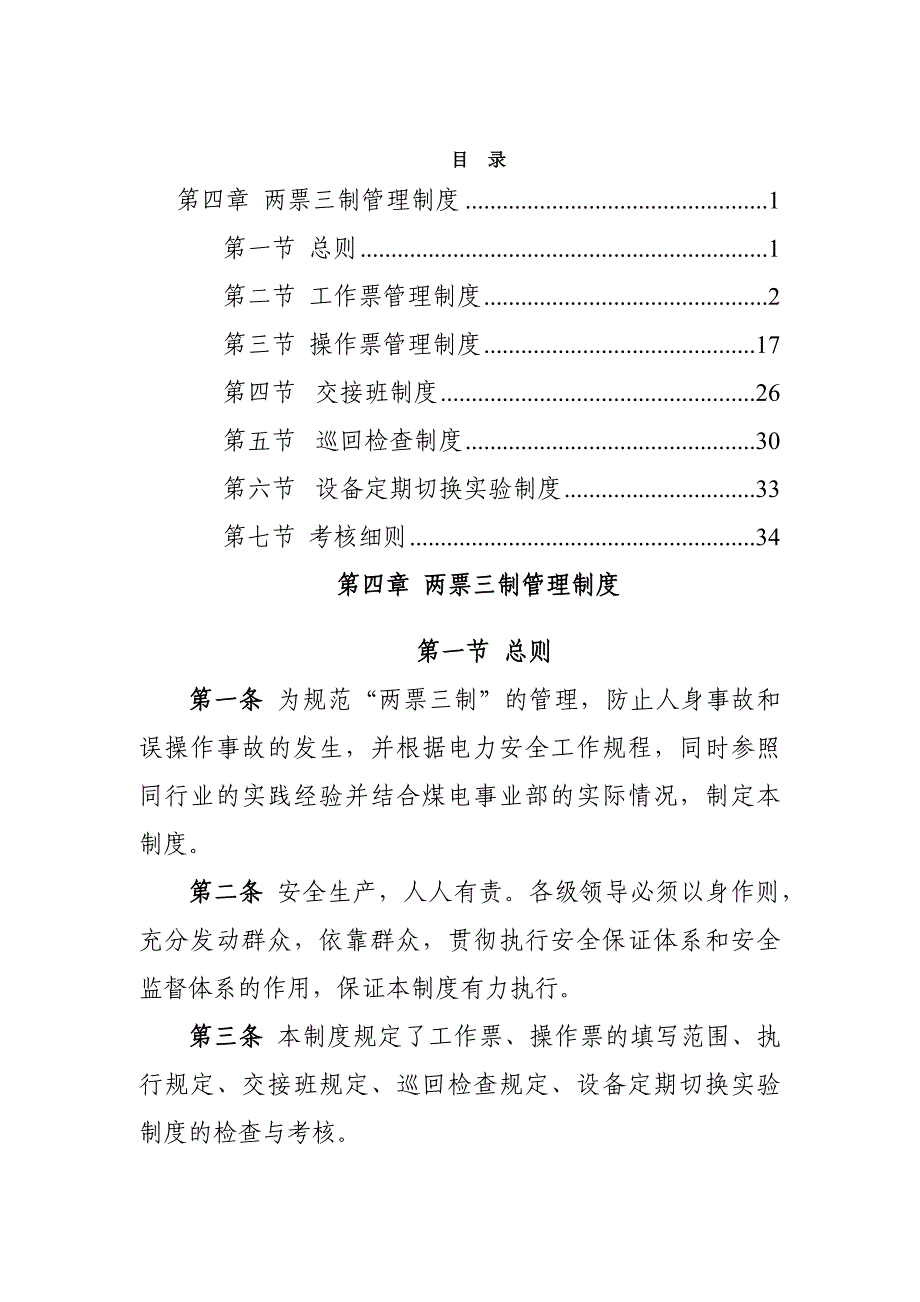 目 录
第四章 两票三制管理制度.................................................1
第一节 总则..................................................................1
第二节 工作票管理制度..............................................2
第三节 操作票管理制度............................................17
第四节 交接班制度...................................................26
第五节 巡回检查制度...............................................30
第六节 设备定期切换实验制度...............................33
第七节 考核细则........................................................34
第四章 两票三制管理制度
第一节 总则
第一条 为规范“两票三制”的管理，防止人身事故和
误操作事故的发生，并根据电力安全工作规程，同时参照
同行业的实践经验并结合煤电事业部的实际情况，制定本
制度。
第二条 安全生产，人人有责。各级领导必须以身作则，
充分发动群众，依靠群众，贯彻执行安全保证体系和安全
监督体系的作用，保证本制度有力执行。
第三条 本制度规定了工作票、操作票的填写范围、执
行规定、交接班规定、巡回检查规定、设备定期切换实验
制度的检查与考核。